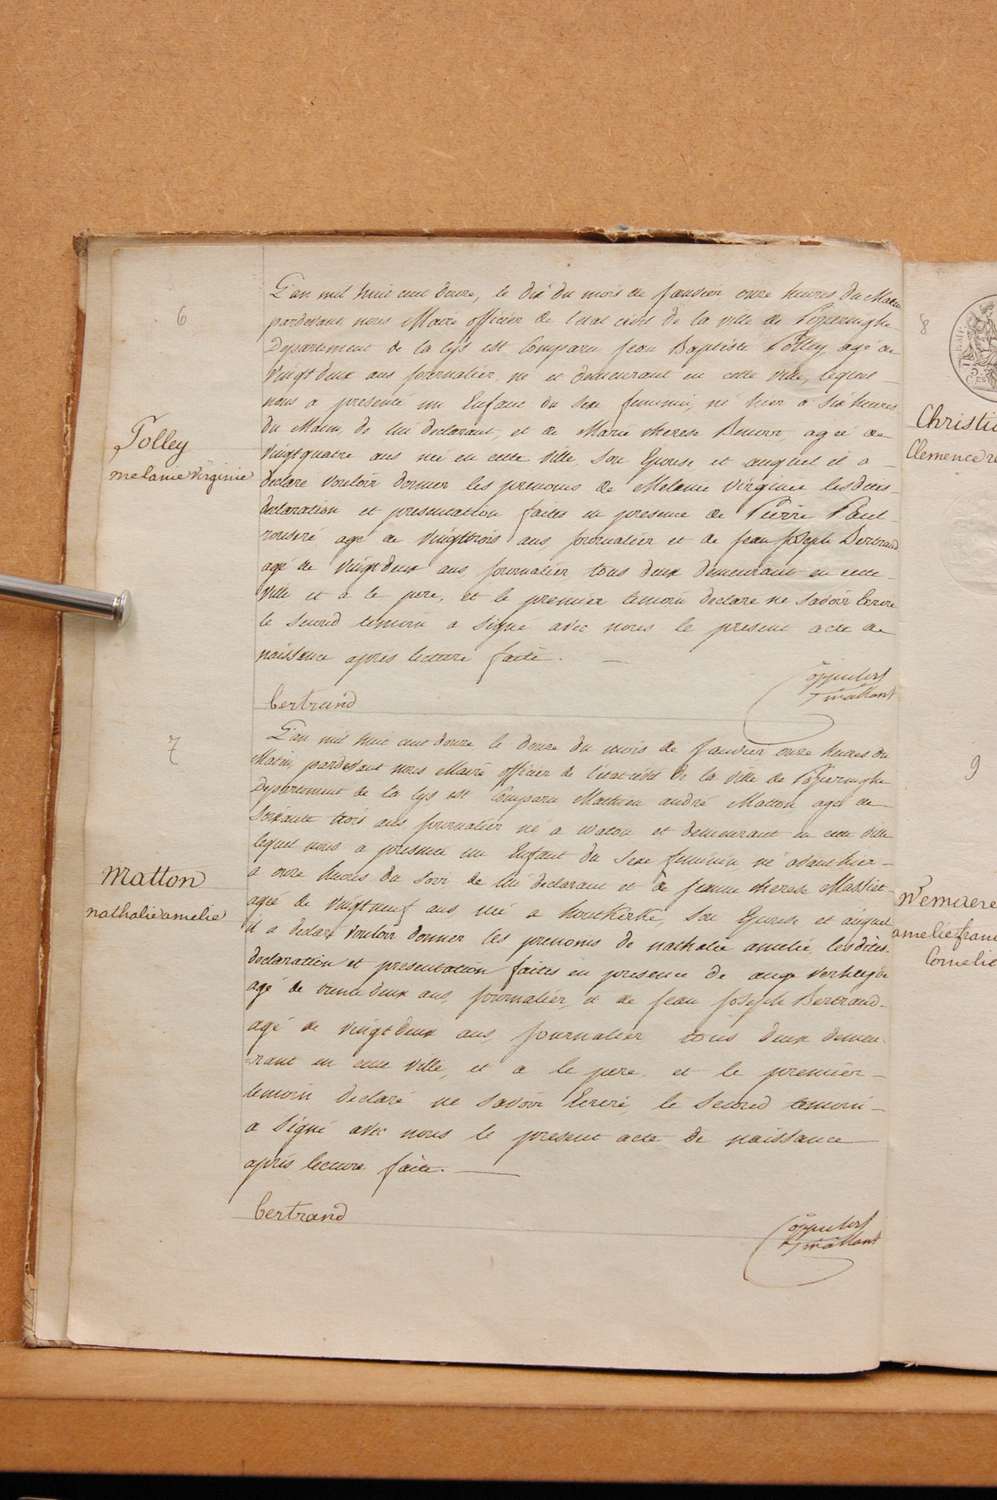 6
Tolley
melanie virginie
L'an mil huit cent douze, le dix du mois de janvier onze heures du Matin
pardevant nous Maire officier de l'etat civil de la ville de Poperinghe
Departement de la Lys est comparu jean Baptiste Tolley agé de
vingt deux ans journalier, né et demeurant en cette ville, lequel
nous a presenté un Enfant du sexe feminin, né hier a six heures
du Matin de lui declarant, et de Marie therese agée de
vingt quatre ans née en cette ville son Epouse et auquel il a
declare vouloir donner les prenoms de Melanie virginie lesdites
declaration et presentation faites en presence de Pierre Paul
agé de vingt trois ans journalier et de jean joseph Bertrand
agé de vingt deux ans, journalier tous deux demeurant en cette
ville et a le pere, et le premier temoin declare ne savoir Ecrire
le second temoin a signé avec nous le present acte de
naissance apres lecture faite.
bertrand
7
Matton
nathalie amelie
L'an mil huit cent douze le douze du mois de janvier onze heures du
Matin, pardevant nous Maire officier de l'etat civil de la ville de Poperinghe
Departement de la Lys est comparu Mathieu andré Matton agé de
soixante trois ans journalier né a watou et demeurant en cette ville
lequel nous a presenté un Enfant du sexe feminin né avant hier
a onze heures du soir de lui declarant et de jeanne therese
agée de vingt neuf ans née a son Epouse et auquel
il a declaré vouloir donner les prenoms de nathalie amelie, lesdites
declaration et presentation faites en presence de ange
agé de trente deux ans, journalier, et de jean joseph Bertrand
agé de vingt deux ans, journalier tous deux demeu-
rant en cette ville, et a le pere, et le premier
temoin declaré ne savoir Ecrire le second temoin
a signé avec nous le present acte de naissance
apres lecture faite.
bertrand
8
Christi
Clemence
9
amelie fran
Cornelie